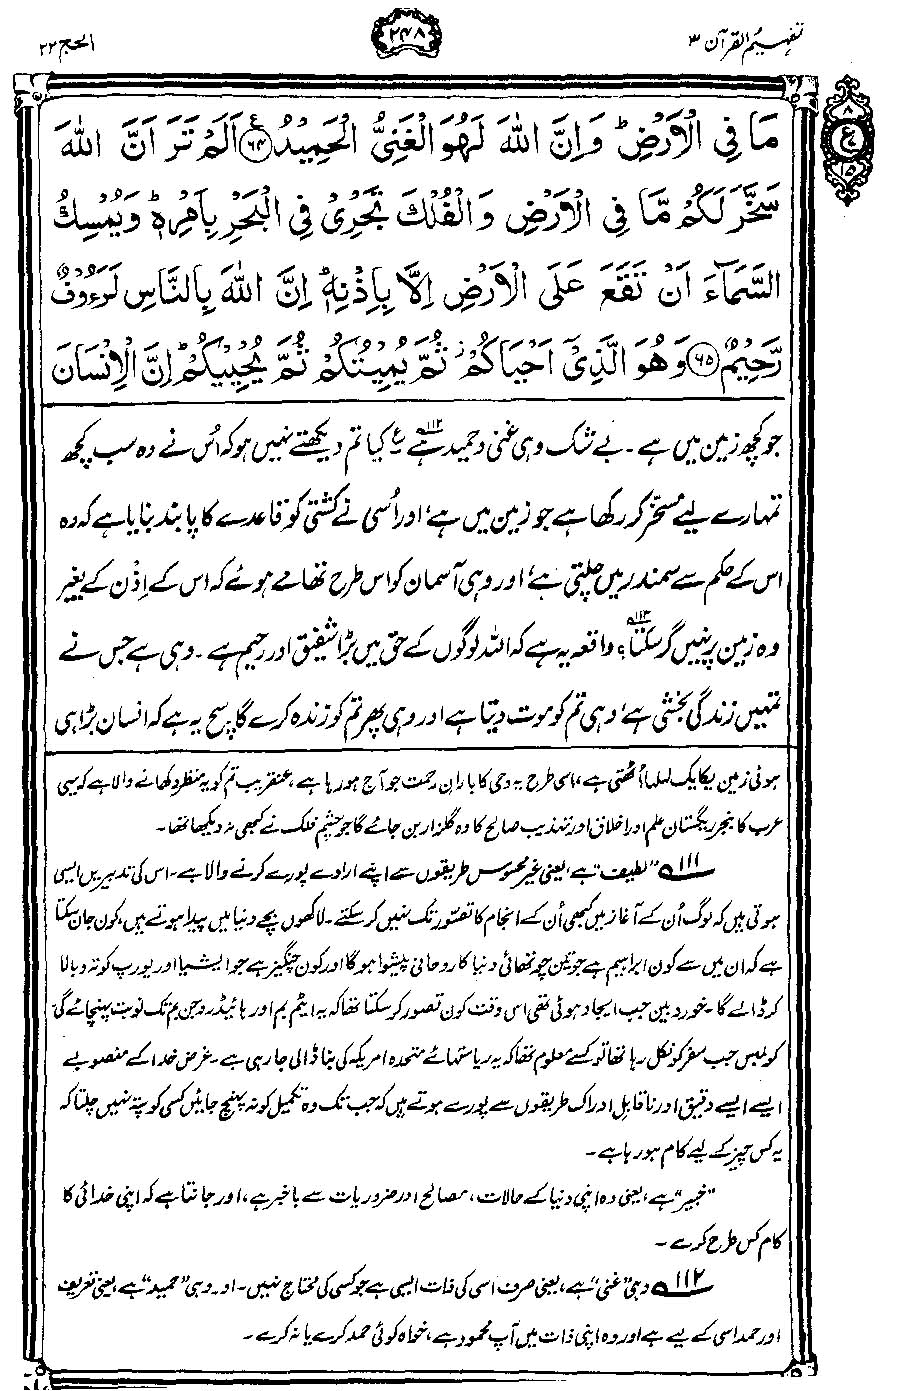 تفہیم القرآن ۳
۲۴۸
الحج ۲۲
۸
ع
۱۵
مَا فِي الْاَرْضِ ؕ وَاِنَّ اللّٰهَ لَهُوَ الْغَنِيُّ الْحَمِيْدُ ﴿۶۴﴾ ع اَلَمْ تَرَ اَنَّ اللّٰهَ
سَخَّرَ لَكُمْ مَّا فِي الْاَرْضِ وَالْفُلْكَ تَجْرِيْ فِي الْبَحْرِ بِاَمْرِهٖ ؕ وَيُمْسِكُ
السَّمَآءَ اَنْ تَقَعَ عَلَى الْاَرْضِ اِلَّا بِاِذْنِهٖ ؕ اِنَّ اللّٰهَ بِالنَّاسِ لَرَءُوْفٌ
رَّحِيْمٌ ﴿۶۵﴾ وَهُوَ الَّذِيْٓ اَحْيَاكُمْ ؗ ثُمَّ يُمِيْتُكُمْ ثُمَّ يُحْيِيْكُمْ ؕ اِنَّ الْاِنْسَانَ
جو کچھ زمین میں ہے۔ بے شک وہی غنی و حمید ہے۱۱۲ ع کیا تم دیکھتے نہیں ہو کہ اُس نے وہ سب کچھ
تمہارے لیے مُسخّر کر رکھا ہے جو زمین میں ہے، اور اُسی نے کشتی کو قاعدے کا پابند بنایا ہے کہ وہ
اس کے حکم سے سمندر میں چلتی ہے، اور وہی آسمان کو اس طرح تھامے ہوئے کہ اس کے اِذن کے بغیر
وہ زمین پر نہیں گر سکتا۱۱۳؟ واقعہ یہ ہے کہ اللہ لوگوں کے حق میں بڑا شفیق اور رحیم ہے۔ وہی ہے جس نے
تمہیں زندگی بخشی ہے، وہی تم کو موت دیتا ہے اور وہی پھر تم کو زندہ کرے گا۔ سچ یہ ہے کہ انسان بڑا ہی
ہوئی زمین یکایک لہلہا اُٹھتی ہے، اسی طرح یہ وحی کا بارانِ رحمت جو آج ہو رہا ہے، عنقریب تم کو یہ منظر دکھانے والا ہے کہ یہی
عرب کا بنجر ریگستان علم اور اخلاق اور تہذیبِ صالح کا وہ گلزار بن جائے گا جو چشمِ فلک نے کبھی نہ دیکھا تھا۔
۱۱۱ ”لطیف“ ہے، یعنی غیر محسوس طریقوں سے اپنے ارادے پورے کرنے والا ہے۔ اس کی تدبیریں ایسی
ہوتی ہیں کہ لوگ اُن کے آغاز میں کبھی اُن کے انجام کا تصوّر تک نہیں کر سکتے۔ لاکھوں بچے دنیا میں پیدا ہوتے ہیں، کون جان سکتا
ہے کہ ان میں سے کون ابراہیم ہے جو تین چوتھائی دنیا کا روحانی پیشوا ہو گا اور کون چنگیز ہے جو ایشیا اور یورپ کو تہ و بالا
کر ڈالے گا۔ خوردبین جب ایجاد ہوئی تھی اس وقت کون تصور کر سکتا تھا کہ یہ ایٹم بم اور ہائیڈروجن بم تک نوبت پہنچائے گی
کولمبس جب سفر کو نکل رہا تھا تو کسے معلوم تھا کہ یہ ریاستہائے متحدہ امریکہ کی بنا ڈالی جا رہی ہے۔ غرض خدا کے منصوبے
ایسے ایسے دقیق اور ناقابلِ ادراک طریقوں سے پورے ہوتے ہیں کہ جب تک وہ تکمیل کو نہ پہنچ جائیں کسی کو پتہ نہیں چلتا کہ
یہ کس چیز کے لیے کام ہو رہا ہے۔
”خبیر“ ہے، یعنی وہ اپنی دنیا کے حالات، مصالح اور ضروریات سے باخبر ہے، اور جانتا ہے کہ اپنی خدائی کا
کام کس طرح کرے۔
۱۱۲ وہی ”غنی“ ہے، یعنی صرف اسی کی ذات ایسی ہے جو کسی کی محتاج نہیں۔ اور وہی ”حمید“ ہے، یعنی تعریف
اور حمد اسی کے لیے ہے اور وہ اپنی ذات میں آپ محمود ہے، خواہ کوئی حمد کرے یا نہ کرے۔